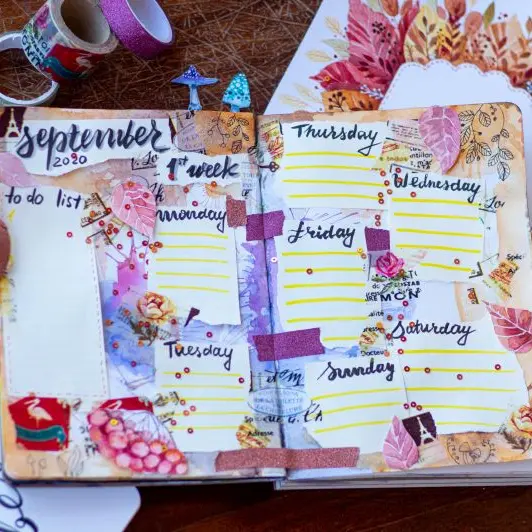 September
2020
1st week
to do list
Monday
Tuesday
Thursday
Wednesday
Friday
Saturday
Sunday
Adresse
Docteur
MON
Spéci